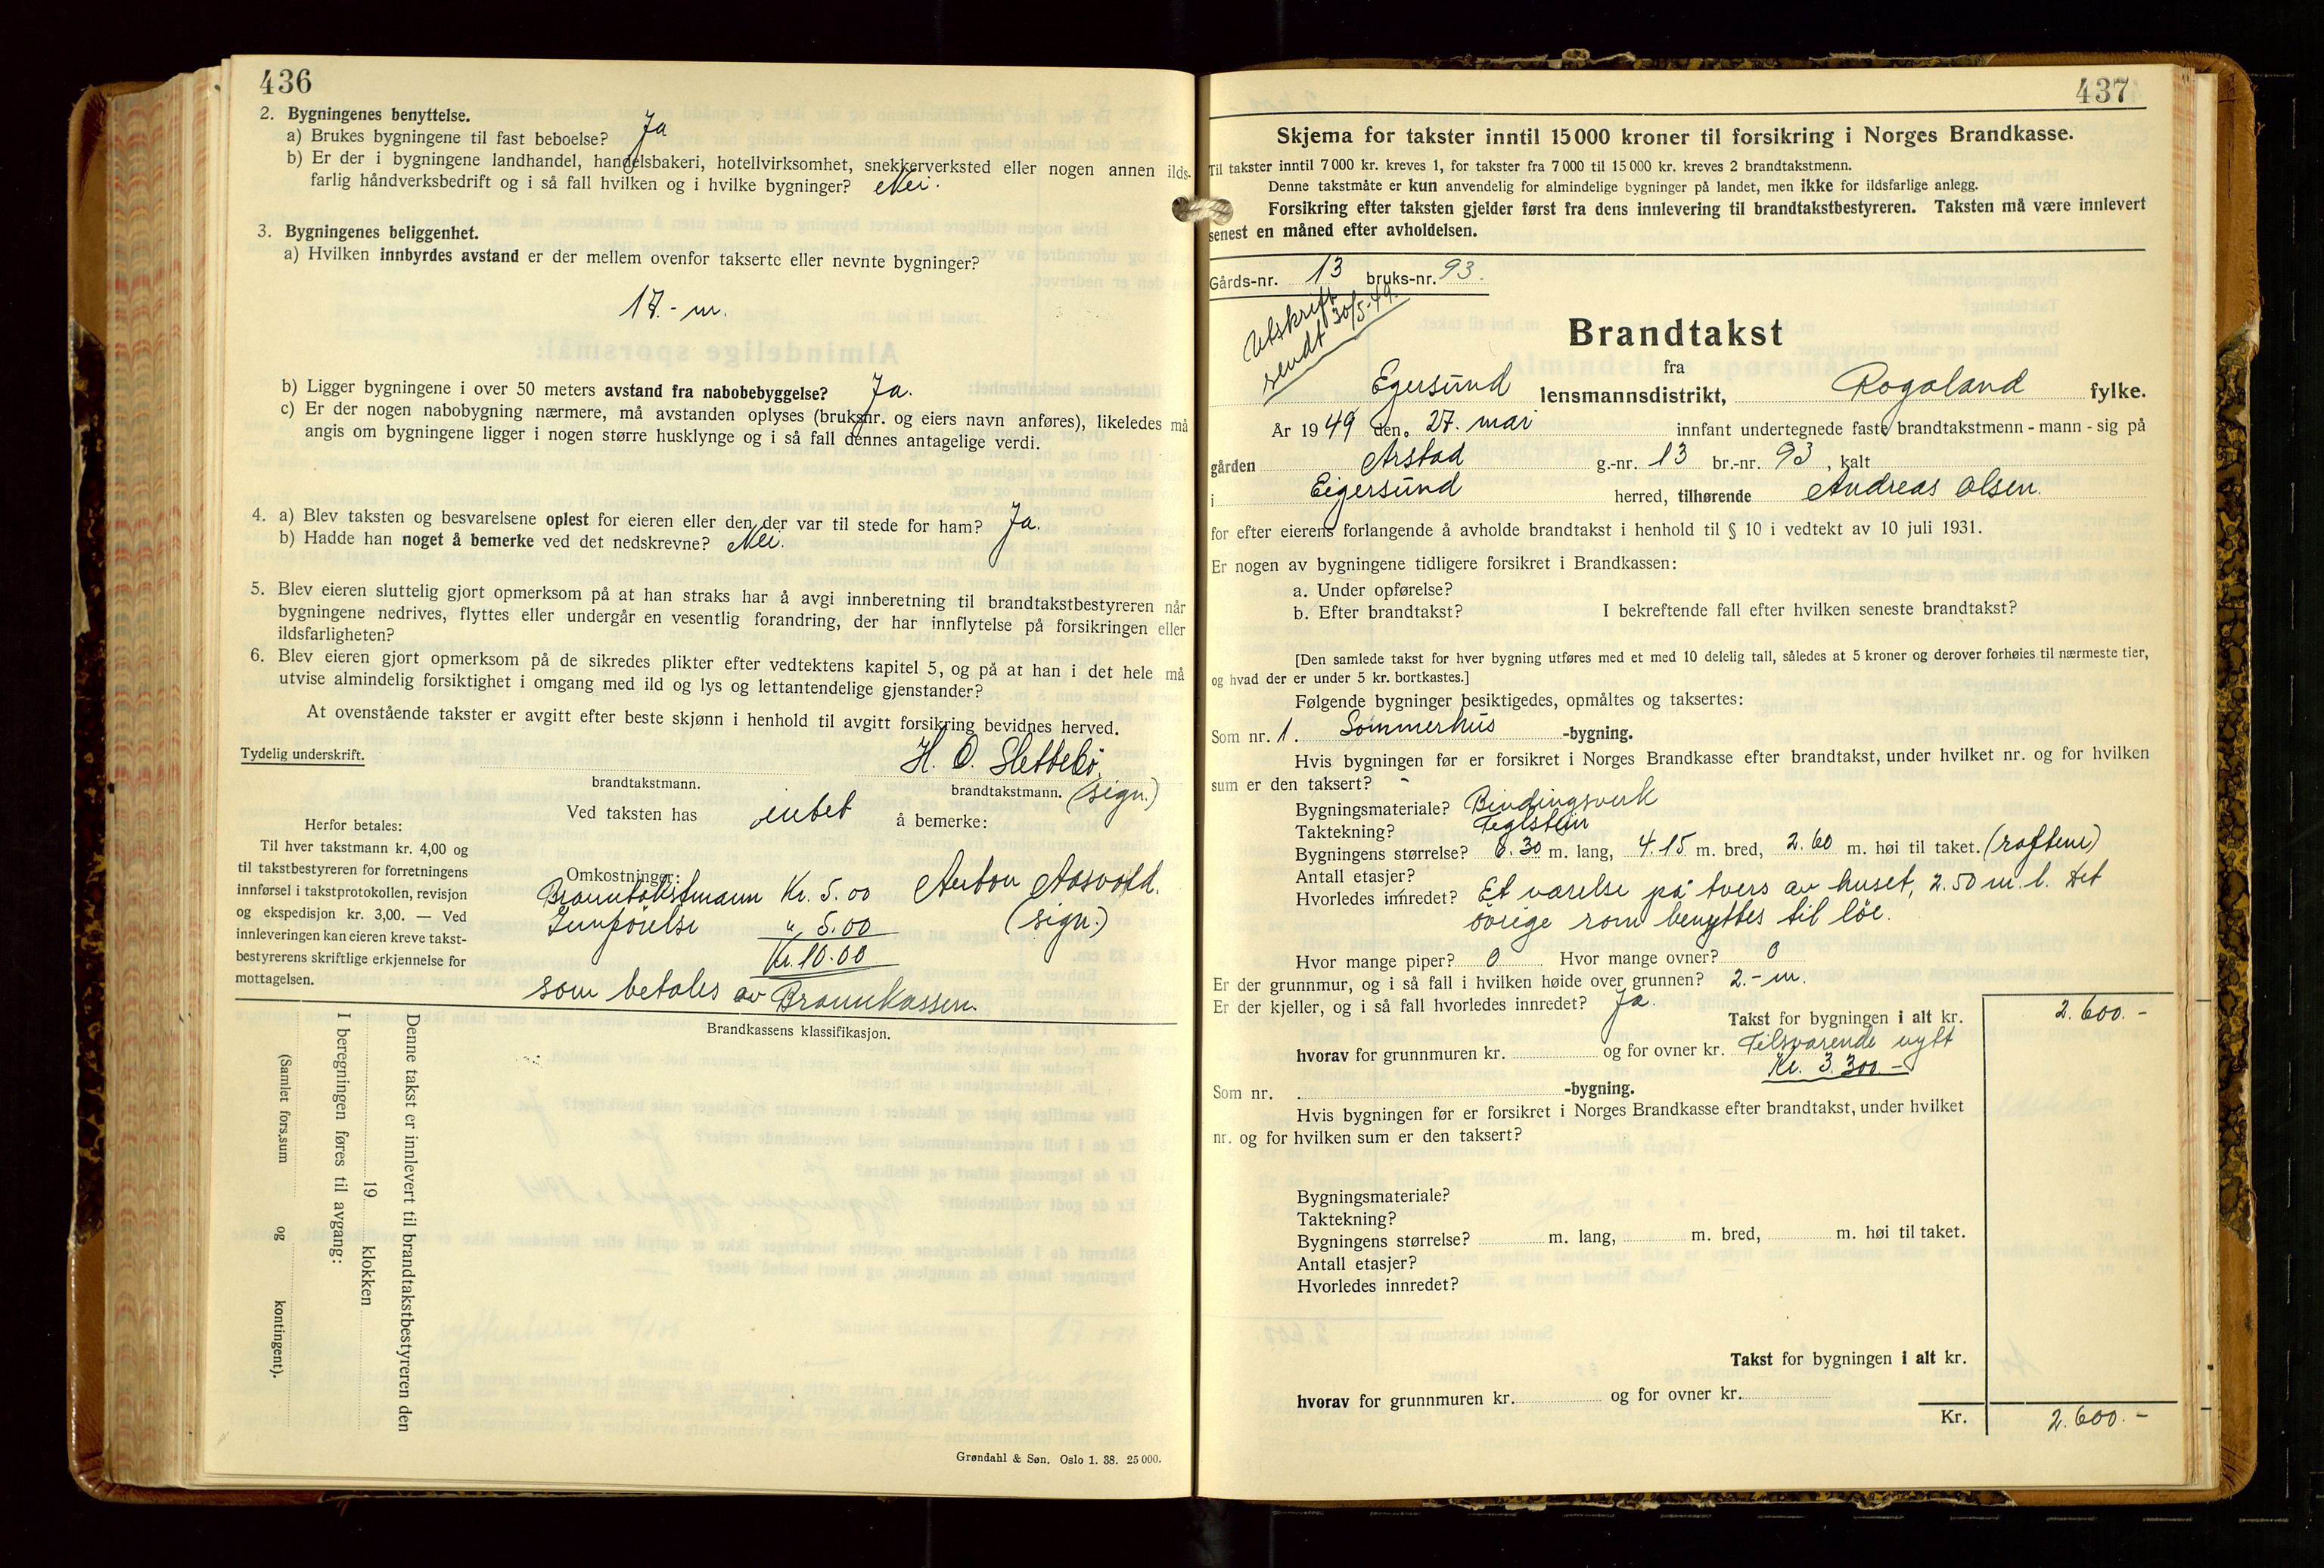 436
2. Bygningenes benyttelse.
a) Brukes bygningene til fast beboelse? Ja
b) Er der i bygningene landhandel, handelsbakeri, hotellvirksomhet, snekkerverksted eller nogen annen ilds-
farlig håndverksbedrift og i så fall hvilken og i hvilke bygninger? Nei.
3. Bygningenes beliggenhet.
a) Hvilken innbyrdes avstand er der mellem ovenfor takserte eller nevnte bygninger?
17.- m.
b) Ligger bygningene i over 50 meters avstand fra nabobebyggelse? Ja.
c) Er der nogen nabobygning nærmere, må avstanden oplyses (bruksnr. og eiers navn anføres), likeledes må
angis om bygningene ligger i nogen større husklynge og i så fall dennes antagelige verdi.
4. a) Blev taksten og besvarelsene oplest for eieren eller den der var til stede for ham? Ja.
b) Hadde han noget å bemerke ved det nedskrevne? Nei.
5. Blev eieren sluttelig gjort opmerksom på at han straks har å avgi innberetning til brandtakstbestyreren når
bygningene nedrives, flyttes eller undergår en vesentlig forandring, der har innflytelse på forsikringen eller
ildsfarligheten?
6. Blev eieren gjort opmerksom på de sikredes plikter efter vedtektens kapitel 5, og på at han i det hele må
utvise almindelig forsiktighet i omgang med ild og lys og lettantendelige gjenstander?
At ovenstående takster er avgitt efter beste skjønn i henhold til avgitt forsikring bevidnes herved.
Tydelig underskrift. H. O. Slettebö
brandtakstmann. brandtakstmann. (sign.)
Ved taksten has intet å bemerke:
Herfor betales:
Til hver takstmann kr. 4,00 og
til takstbestyreren for forretningens
innførsel i takstprotokollen, revisjon
og ekspedisjon kr. 3,00. — Ved
innleveringen kan eieren kreve takst-
bestyrerens skriftlige erkjennelse for
mottagelsen.
Omkostninger:
Branntakstmann Kr. 5.00 Anton Aasvold.
Innförelse " 5.00 (sign.)
Kr. 10.00
som betales av Brannkassen.
Brandkassens klassifikasjon.
Denne takst er innlevert til brandtakstbestyreren den
19 klokken
I beregningen føres til avgang:
(Samlet fors.sum og kontingent).
Grøndahl & Søn. Oslo 1. 38. 25 000.
437
Skjema for takster inntil 15 000 kroner til forsikring i Norges Brandkasse.
Til takster inntil 7 000 kr. kreves 1, for takster fra 7 000 til 15 000 kr. kreves 2 brandtakstmenn.
Denne takstmåte er kun anvendelig for almindelige bygninger på landet, men ikke for ildsfarlige anlegg.
Forsikring efter taksten gjelder først fra dens innlevering til brandtakstbestyreren. Taksten må være innlevert
senest en måned efter avholdelsen.
Gårds-nr. 13 bruks-nr. 93.
Utskrift
sendt 30/5-49.
Brandtakst
fra
Egersund lensmannsdistrikt, Rogaland fylke.
År 1949 den 27. mai innfant undertegnede faste brandtakstmenn - mann - sig på
gården Årstad g.-nr. 13 br.-nr. 93, kalt
i Eigersund herred, tilhørende Andreas Olsen.
for efter eierens forlangende å avholde brandtakst i henhold til § 10 i vedtekt av 10 juli 1931.
Er nogen av bygningene tidligere forsikret i Brandkassen:
a. Under opførelse?
b. Efter brandtakst? I bekreftende fall efter hvilken seneste brandtakst?
[Den samlede takst for hver bygning utføres med et med 10 delelig tall, således at 5 kroner og derover forhøies til nærmeste tier,
og hvad der er under 5 kr. bortkastes.]
Følgende bygninger besiktigedes, opmåltes og taksertes:
Som nr. 1. Sommerhus -bygning.
Hvis bygningen før er forsikret i Norges Brandkasse efter brandtakst, under hvilket nr. og for hvilken
sum er den taksert? -
Bygningsmateriale? Bindingsverk
Taktekning? Teglstein
Bygningens størrelse? 6.30 m. lang, 4.15 m. bred, 2.60 m. høi til taket. (raftene)
Antall etasjer?
Hvorledes innredet? Et værelse på tvers av huset, 2.50 m. l. Det
övrige rom benyttes til löe.
Hvor mange piper? 0 Hvor mange ovner? 0
Er der grunnmur, og i så fall i hvilken høide over grunnen? 2.- m.
Er der kjeller, og i så fall hvorledes innredet? Ja.
Takst for bygningen i alt kr. 2.600.-
hvorav for grunnmuren kr. og for ovner kr. Tilsvarende nytt
Kr. 3.300.-
Som nr. -bygning.
Hvis bygningen før er forsikret i Norges Brandkasse efter brandtakst, under hvilket
nr. og for hvilken sum er den taksert?
Bygningsmateriale?
Taktekning?
Bygningens størrelse? m. lang, m. bred, m. høi til taket.
Antall etasjer?
Hvorledes innredet?
Takst for bygningen i alt kr.
hvorav for grunnmuren kr. og for ovner kr.
Kr. 2.600.-